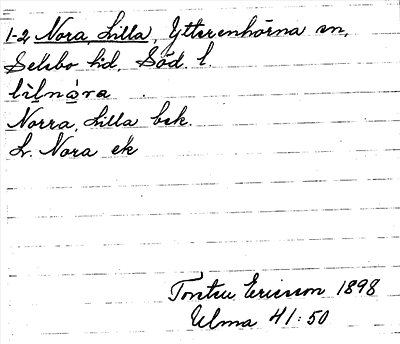 1-2, Nora, Lilla, Ytterenhörna sn,
Selebo hd, Söd. l.
lìlnòra
Norra, Lilla bek.
L. Nora ek
Torsten Ericsson 1898
Ulma 41:50